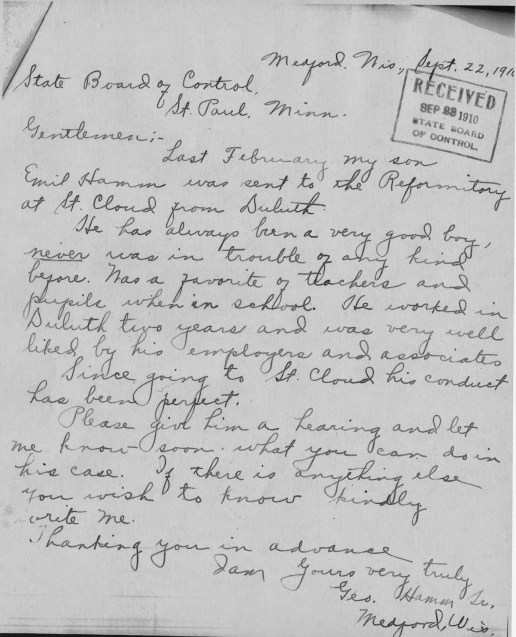 Medford, Wis., Sept. 22, 1910
State Board of Control,
St. Paul, Minn.
RECEIVED
SEP 23 1910
STATE BOARD
OF CONTROL.
Gentlemen;-
Last February my son
Emil Hamm was sent to the Reformitory
at St. Cloud from Duluth.
He has always been a very good boy,
never was in trouble of any kind
before. Was a favorite of teachers and
pupils when in school. He worked in
Duluth two years and was very well
liked by his employers and associates
Since going to St. Cloud his conduct
has been perfect.
Please give him a hearing and let
me know soon what you can do in
his case. If there is anything else
you wish to know kindly
write me.
Thanking you in advance
I am Yours very truly
Geo. Hamm Sr.
Medford, Wis.